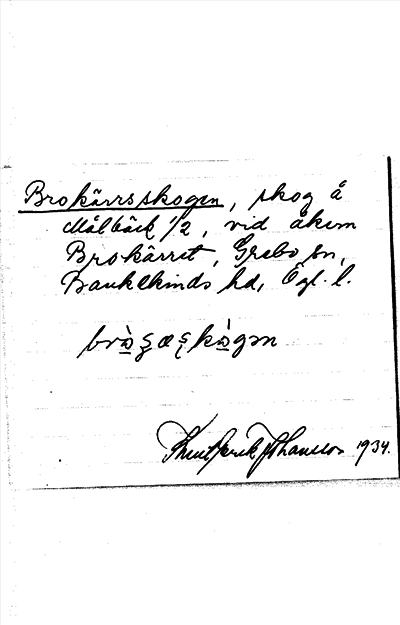 Brokärrsskogen, skog å
Målbäck 1/2, vid åkern
Brokärret, Grebo sn,
Bankekinds hd, Ögl. l.
Johansson 1934.